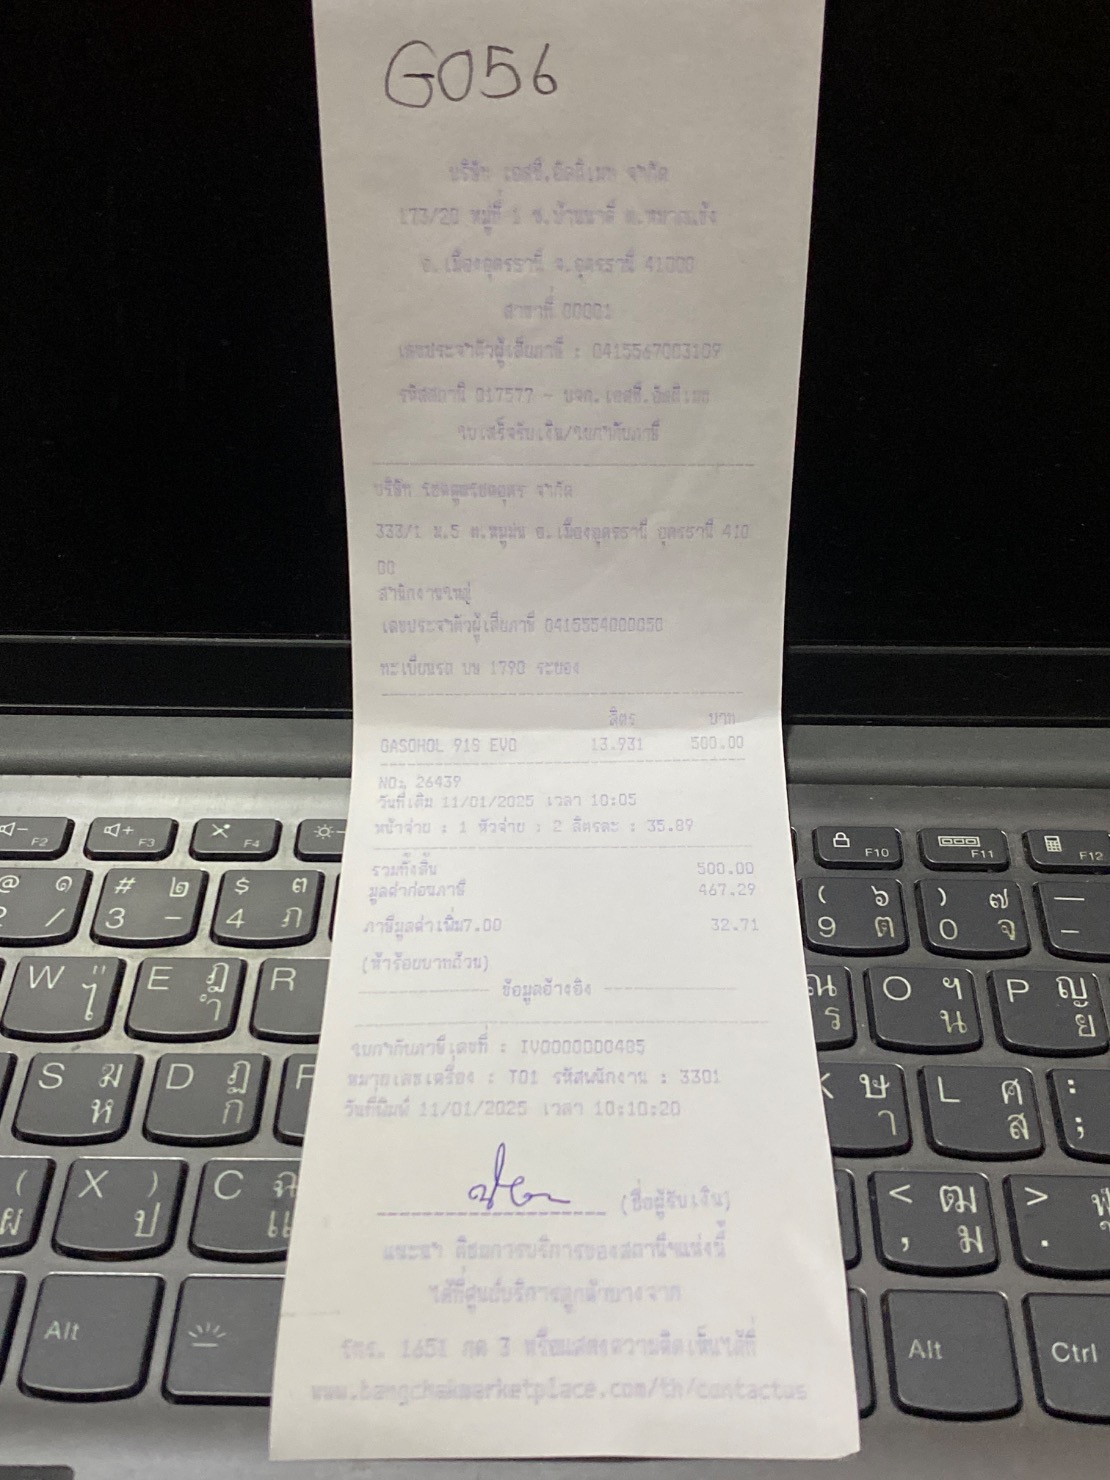 G056
บริษัท เอสซี.อัลติเมท จำกัด
173/20 หมู่ที่ 1 ซ.บ้านนาดี ต.หมากแข้ง
อ.เมืองอุดรธานี จ.อุดรธานี 41000
สาขาที่ 00001
เลขประจำตัวผู้เสียภาษี : 0415567003109
รหัสสถานี 017577 - บจก.เอสซี.อัลติเมท
ใบเสร็จรับเงิน/ใบกำกับภาษี
บริษัท จำกัด
333/1 ม.5 ต.หมูม่น อ.เมืองอุดรธานี อุดรธานี 410
00
สำนักงานใหญ่
เลขประจำตัวผู้เสียภาษี 0415554000050
ทะเบียนรถ บน 1790 ระยอง
ลิตร บาท
GASOHOL 91S EVO 13.931 500.00
NO: 26439
วันที่เติม 11/01/2025 เวลา 10:05
หน้าจ่าย : 1 หัวจ่าย : 2 ลิตรละ : 35.89
รวมทั้งสิ้น 500.00
มูลค่าก่อนภาษี 467.29
ภาษีมูลค่าเพิ่ม7.00 32.71
(ห้าร้อยบาทถ้วน)
ข้อมูลอ้างอิง
ใบกำกับภาษีเลขที่ : IV0000000485
หมายเลขเครื่อง : T01 รหัสพนักงาน : 3301
วันที่พิมพ์ 11/01/2025 เวลา 10:10:20
(ชื่อผู้รับเงิน)
แนะนำ ติชมการบริการของสถานีฯแห่งนี้
ได้ที่ศูนย์บริการลูกค้าบางจาก
โทร. 1651 กด 3 หรือแสดงความคิดเห็นได้ที่
www.bangchakmarketplace.com/th/contactus
@ ๑ 2 /
# ๒ 3 -
$ ๓ 4 ภ
( ๖ 9 ต
) ๗ 0 จ
F2
F3
F4
F10
F11
F12
W " ไ
E ฎ ำ
R
ณ ร
O ฯ น
P ญ ย
S ฆ ห
D ฏ ก
F
K ษ า
L ศ ส
: ;
( ผ
X ) ป
C ฉ แ
< ฒ , ม
> .
Alt
Alt
Ctrl